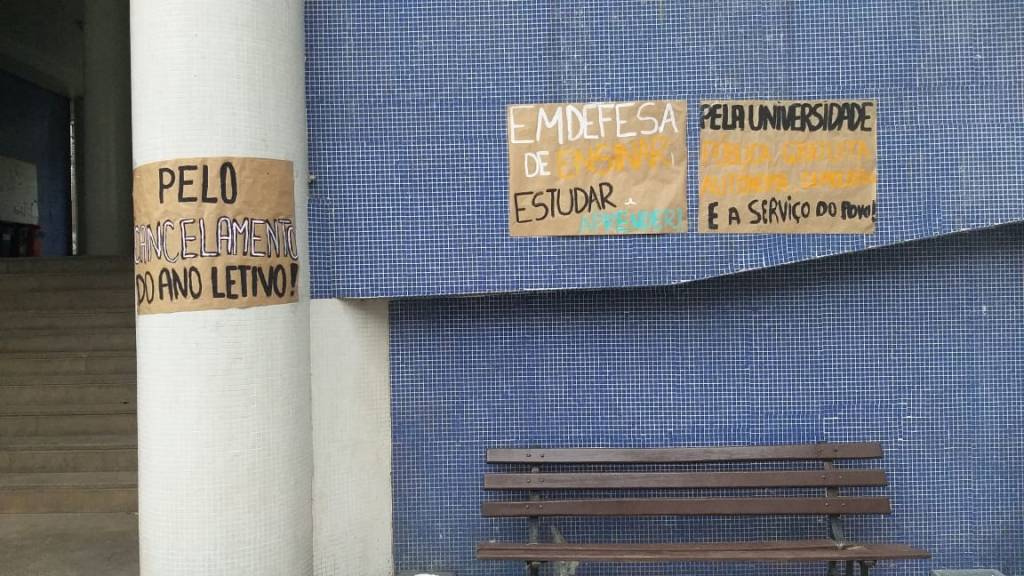 PELO
CANCELAMENTO
DO ANO LETIVO!
EM DEFESA
DE ENSINAR,
ESTUDAR e
APRENDER!
PELA UNIVERSIDADE
PÚBLICA, GRATUITA
AUTÔNOMA
E A SERVIÇO DO POVO!